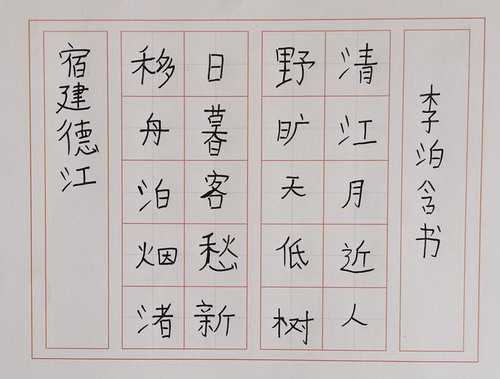 宿建德江
移舟泊烟渚
日暮客愁新
野旷天低树
清江月近人
李泊含书